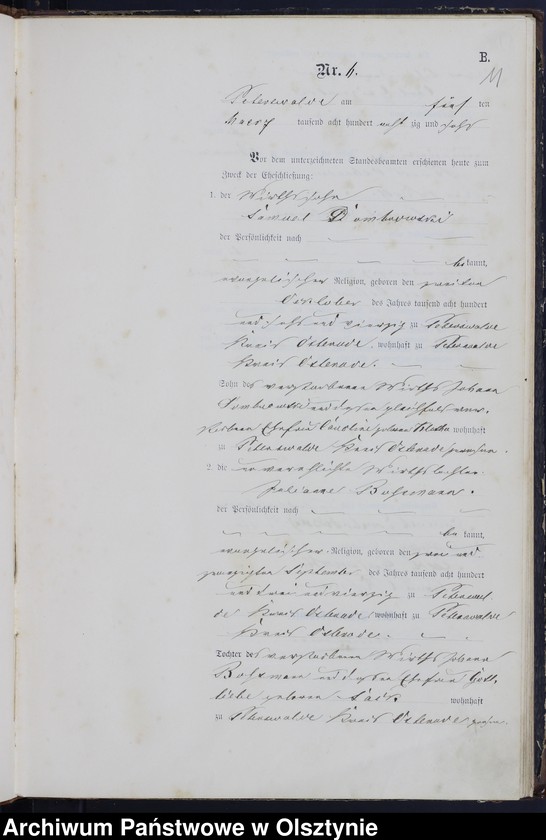 B.
11
Nr. 4.
Peterswalde am fünf ten
Maerz tausend acht hundert acht zig und sechs
Vor dem unterzeichneten Standesbeamten erschienen heute zum
Zweck der Eheschließung:
1. der Wirthssohn
Samuel Dombrowski
der Persönlichkeit nach
be kannt,
evangelischer Religion, geboren den zweiten
October des Jahres tausend acht hundert
und sechs und vierzig zu Peterswalde
Kreis Osterode, wohnhaft zu Peterswalde
Kreis Osterode.
Sohn des verstorbenen Wirths Johann
Dombrowski und dessen gleichfalls ver-
storbenen Ehefrau Caroline geborene wohnhaft
zu Peterswalde Kreis Osterode gewesen.
2. die unverehlichte Wirthstochter
Juliane Bohrmann.
der Persönlichkeit nach
be kannt,
evangelischer Religion, geboren den zwei und
zwanzigsten September des Jahres tausend acht hundert
und drei und vierzig zu Peterswal
de Kreis Osterode, wohnhaft zu Peterswalde
Kreis Osterode.
Tochter des verstorbenen Wirths Johann
Bohrmann und dessen Ehefrau Gott-
liebe geborene wohnhaft
zu Peterswalde Kreis Osterode
Archiwum Państwowe w Olsztynie